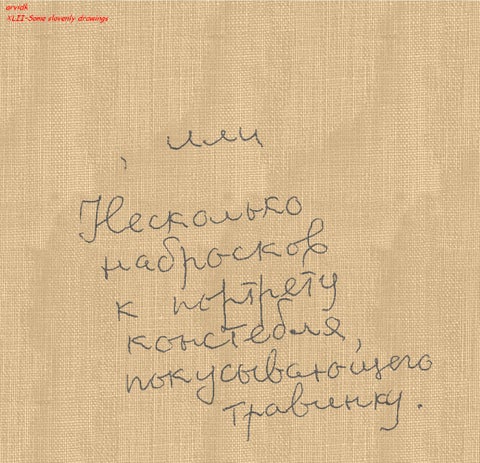 arvidk
XLII-Some slovenly drawings
, или
Несколько
набросков
к портрету
констебля,
покусывающего
травинку.